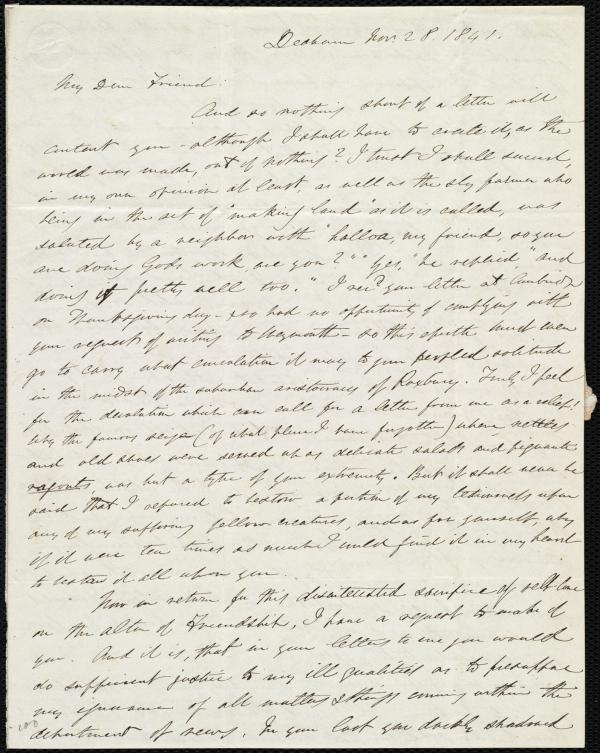 Dedham Nov. 28. 1841.
My Dear Friend:
And so nothing short of a letter will
content you - although I shall have to create it, as the
world was made, out of nothing? I trust I shall succeed,
in my own opinion at least, as well as the sly farmer who
being in the act of "making land" as it is called, was
saluted by a neighbor with "halloa, my friend, so you
are doing Gods work, are you?" "Yes," he replied "and
doing it pretty well too." I recd your letter at Cambridge
on Thanksgiving day - & so had no opportunity of complying with
your request of writing to Weymouth - so this epistle must even
go to carry what consolation it may to your peopled solitude
in the midst of the suburban aristocracy of Roxbury. Truly I feel
for the desolation which can call for a letter from me as a relief!
Why the famous seige (of what place I have forgotten) where nettles
and old shoes were served up as delicate salads and piquante
ragouts was but a type of your extremity. But it shall never be
said that I refused to bestow a portion of my tediousness upon
any of my suffering fellow creatures, and as for yourself, why
if it were ten times as much I could find it in my heart
to bestow it all upon you.
Now in return for this disinterested sacrifice of self love
on the altar of Friendship, I have a request to make of
you. And it is, that in your letters to me you would
do sufficient justice to my ill qualities as to presuppose
my ignorance of all matters & things coming within the
department of news. In your last you darkly shadowed